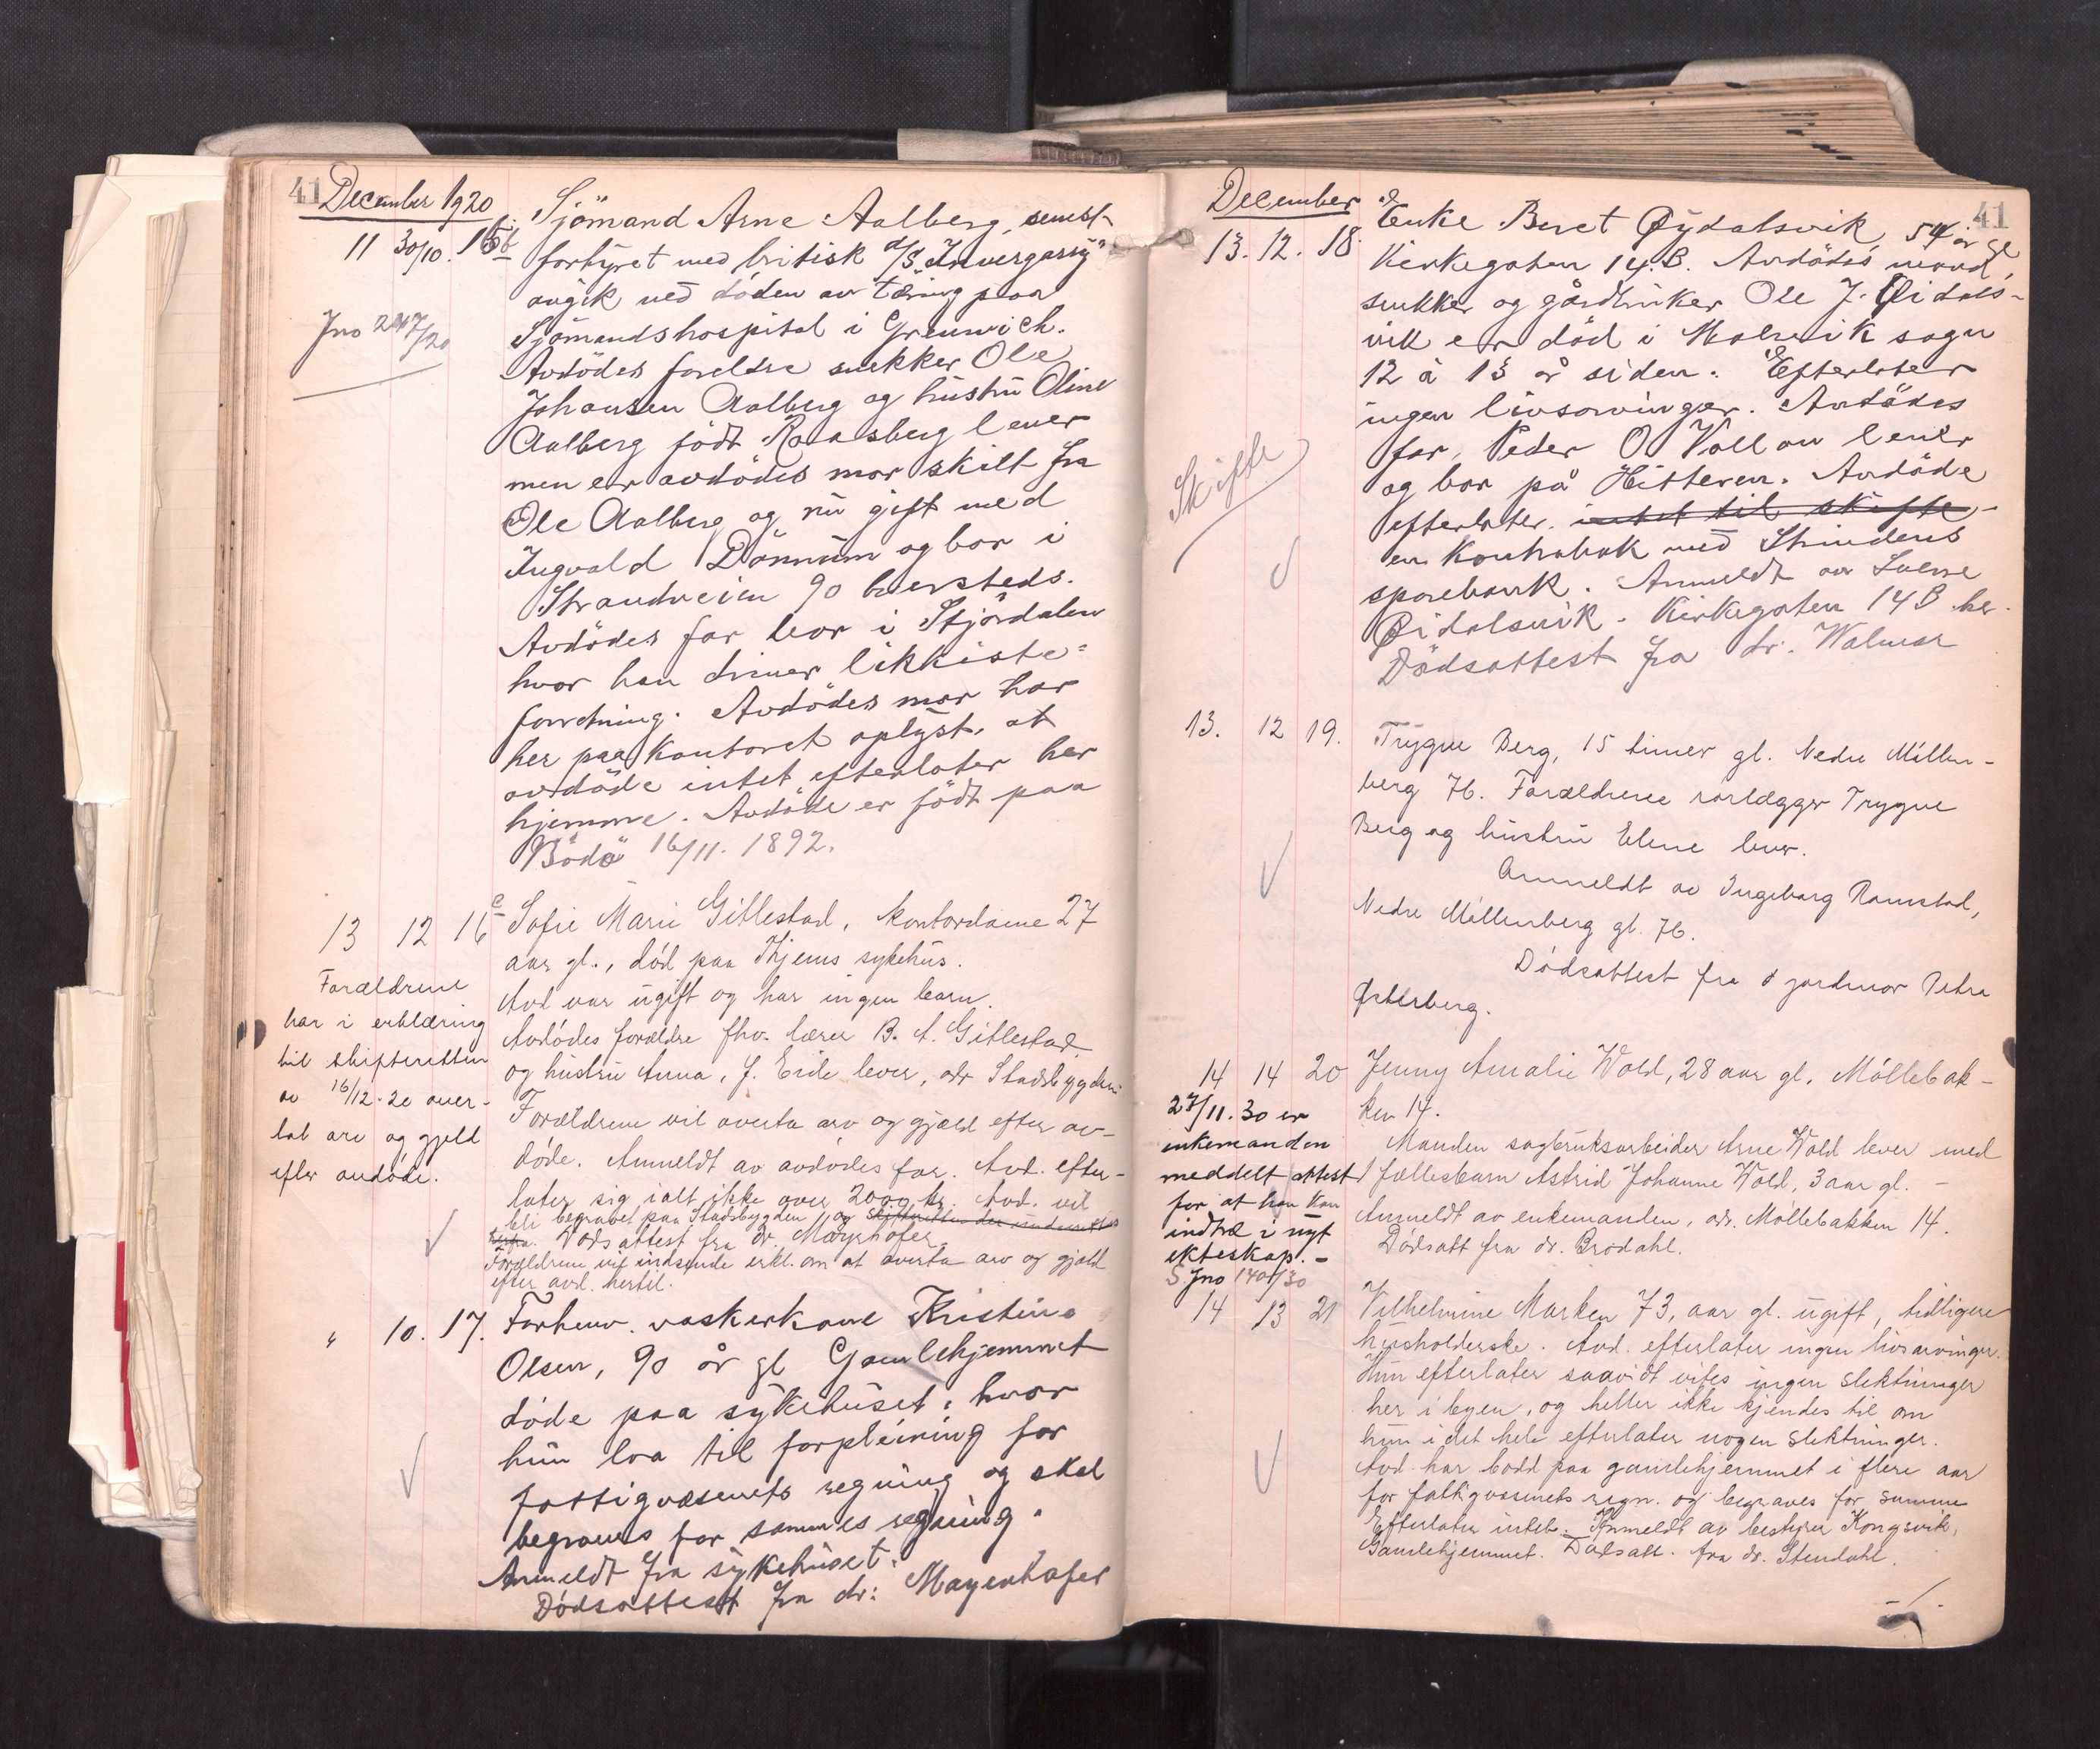 41 December 1920
11 30/10. 15b. Sjömand Arne Aalberg, senest
forhyret med britisk d/s "Invergarry"
avgik ved döden av tæring paa
Jno 247/20
Sjömandshospital i Greenwich.
Avdödes foreldre snekker Ole
Johansen Aalberg og hustru Oline
Aalberg födt Ramsberg lever
men er avdödes mor skilt fra
Ole Aalberg og nu gift med
Ingvald Dönnum og bor i
Strandveien 90 hersteds.
Avdödes far bor i Stjørdalen
hvor han driver likkiste=
forretning. Avdödes mor har
her paa kontoret oplyst, at
avdöde intet efterlater her
hjemme. Avdöde er födt paa
Bodö 16/11. 1892.
13 12 16 Sofie Marie Gillestad, kontordame 27
aar gl., död paa Thjems sykehus.
Avd var ugift og har ingen barn.
Avdödes forældre fhv. lærer B. A. Gillestad
og hustru Anna, f. Eide lever, adr Stadsbygden.
Forældrene vil overta arv og gjæld efter av-
döde. Anmeldt av avdödes far. Avd. efter-
later sig ialt ikke over 2000 kr. Avd. vil
bli begravet paa Stadsbygden og skifteretten der underrettes
herfra. Dödsattest fra dr. Mayrhofer.
Forældrene vil indsende erkl. om at overta arv og gjæld
efter avd. hertil.
Forældrene
har i erklæring
til skifteretten
av 16/12-20 over-
tat arv og gjeld
efter avdöde.
" 10. 17. Forhenv. vaskerkone Kristine
Olsen, 90 år gl Gamlehjemmet
döde paa sykehuset, hvor
hun laa til forpleining for
fattigvæsenets regning og skal
begraves for sammes regning.
Anmeldt fra sykehuset.
Dödsattest fra dr: Mayerhofer
December 41
13. 12. 18. Enke Beret Øydalsvik, 54 år gl
Kirkegaten 14.B. Avdödes mand,
snekker og gårdbruker Ole J. Øidals-
vik er död i Malvik sogn
12 à 13 år siden. Efterlater
ingen livsarvinger. Avdödes
far, Peder O Vollan lever
og bor på Hitteren. Avdöde
efterlater intet til skifte -
en kontrabok med Strindens
sparebank. Anmeldt av Sverre
Øidalsvik. Kirkegaten 14 B her.
Dödsattest fra dr. Walmsæ
Skifte
13. 12 19. Trygve Berg, 15 timer gl. Nedre Möllen-
berg 76. Forældrene rørlægger Trygve
Berg og hustru Elene lever.
Anmeldt av Ingeborg Ramstad,
Nedre Möllenberg gl. 76.
Dödsattest fra jordmor Petra
Østerberg.
14 14 20 Jenny Amalie Wold, 28 aar gl, Möllebak-
ken 14.
Manden sagbruksarbeider Arne Wold lever med
1 fællesbarn Astrid Johanne Wold, 3 aar gl. -
Anmeldt av enkemanden, adr. Möllebakken 14.
Dödsatt fra dr. Brodahl.
27/11.30 er
enkemanden
meddelt attest
for at han kan
indtræ i nyt
ekteskap. -
S Jno 140/30
14 13 21 Vilhelmine Marken 73, aar gl. ugift, tidligere
husholderske. Avd. efterlater ingen livsarvinger.
Hun efterlater saavidt vites ingen slektninger
her i byen, og heller ikke kjendes til om
hun i det hele efterlater nogen slektninger.
Avd. har bodd paa gamlehjemmet i flere aar
for fattigvæsenets regn. og begraves for samme
Efterlater intet. Anmeldt av bestyrer Kongsvik,
Gamlehjemmet. Dödsatt. fra dr. Stendahl.